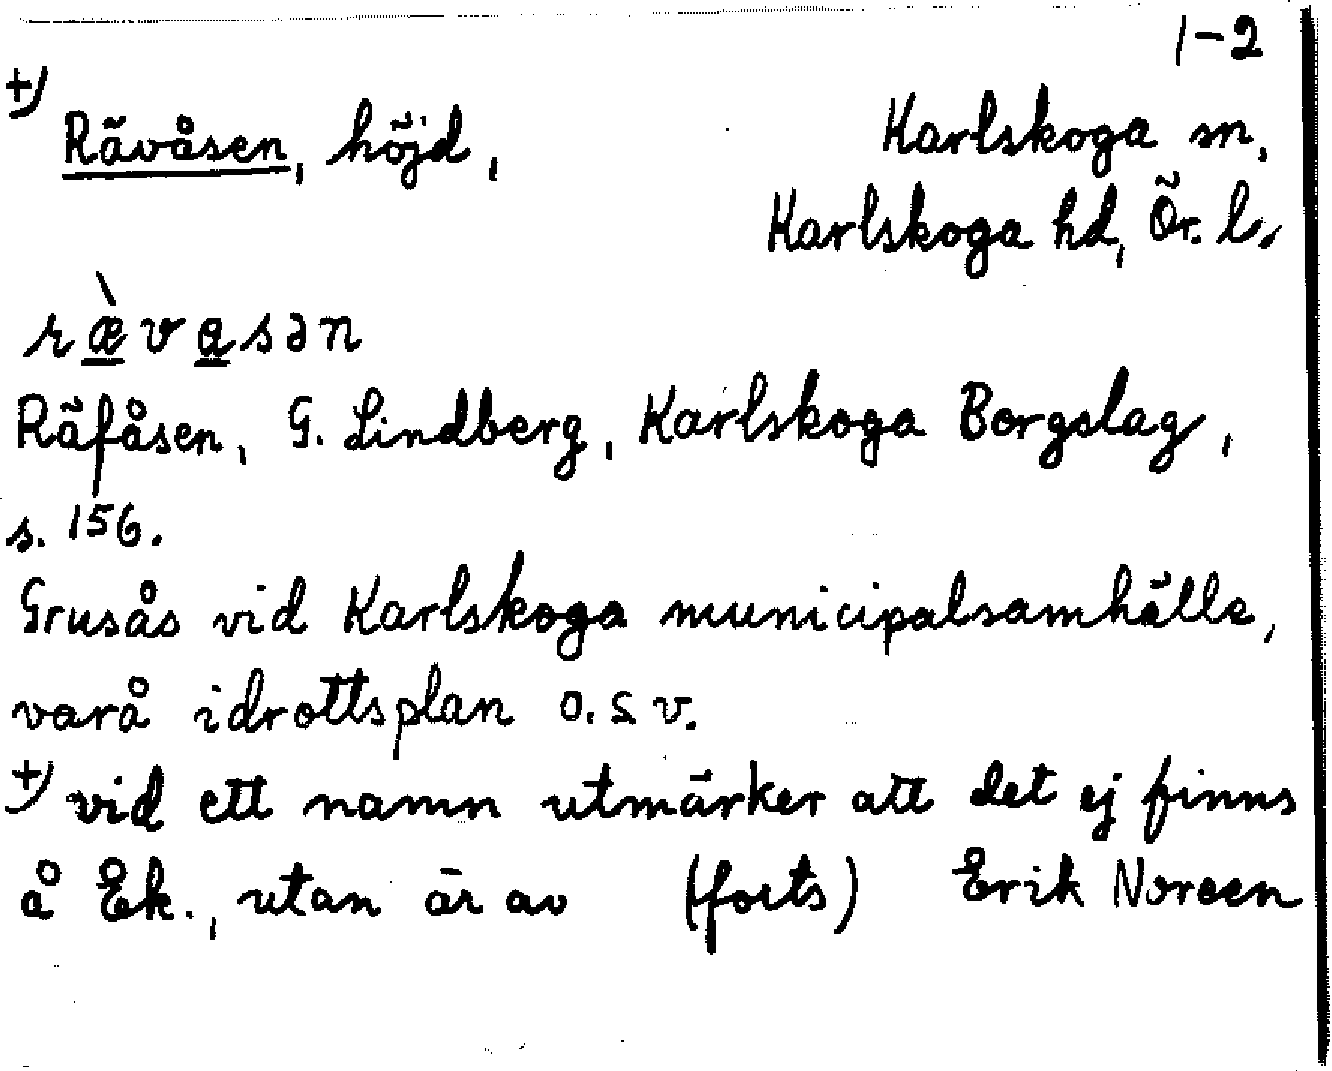 1-2
+) Rävåsen, höjd, Karlskoga sn,
Karlskoga hd, Ör. l.
ræ̀vasən
Räfåsen, G. Lindberg, Karlskoga Bergslag,
s. 156.
Grusås vid Karlskoga municipalsamhälle,
varå idrottsplan o.s.v.
+) vid ett namn utmärker att det ej finns
å Ek., utan är av (forts) Erik Noreen